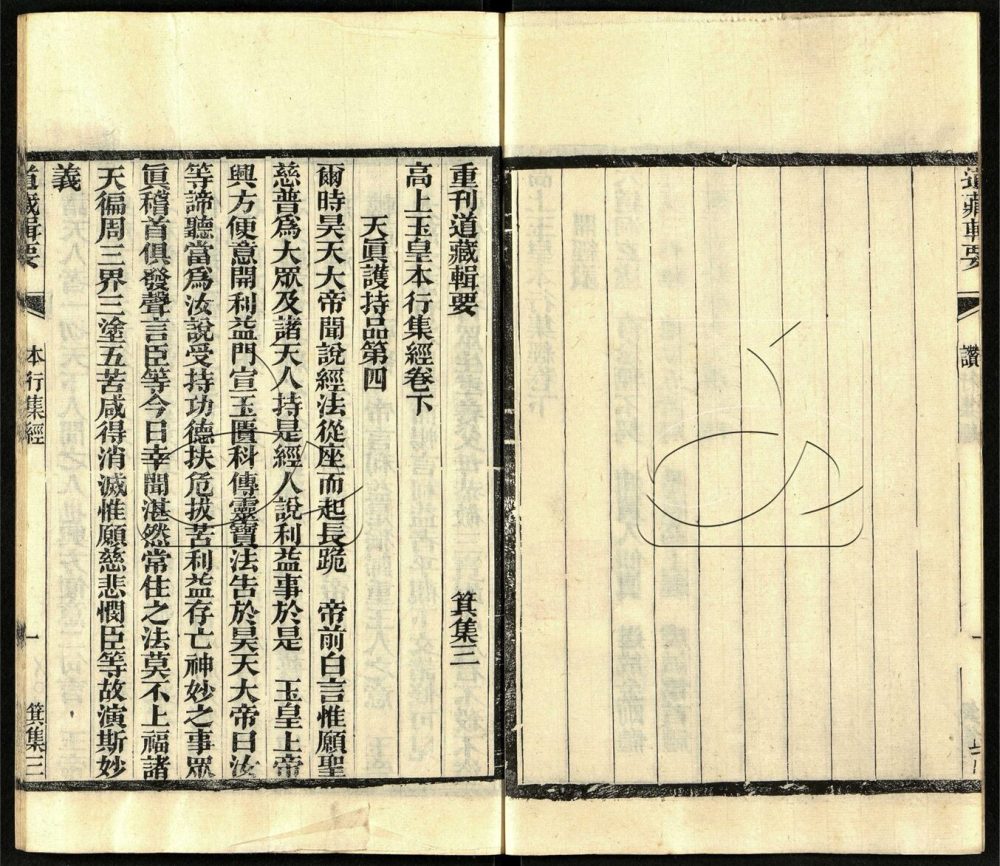 道藏輯要
讚
重刊道藏輯要　箕集三
高上玉皇本行集經卷下
天眞護持品第四
爾時昊天大帝聞說經法從座而起長跪　帝前白言惟願聖
慈普爲大眾及諸天人持是經人說利益事於是　玉皇上帝
興方便意開利益門宣玉匱科傳靈寶法告於昊天大帝曰汝
等諦聽當爲汝說受持功德扶危拔苦利益存亡神妙之事眾
眞稽首俱發聲言臣等今日幸聞湛然常住之法莫不上福諸
天徧周三界三塗五苦咸得消滅惟願慈悲憫臣等故演斯妙
義
道藏輯要　本行集經　一　箕集三